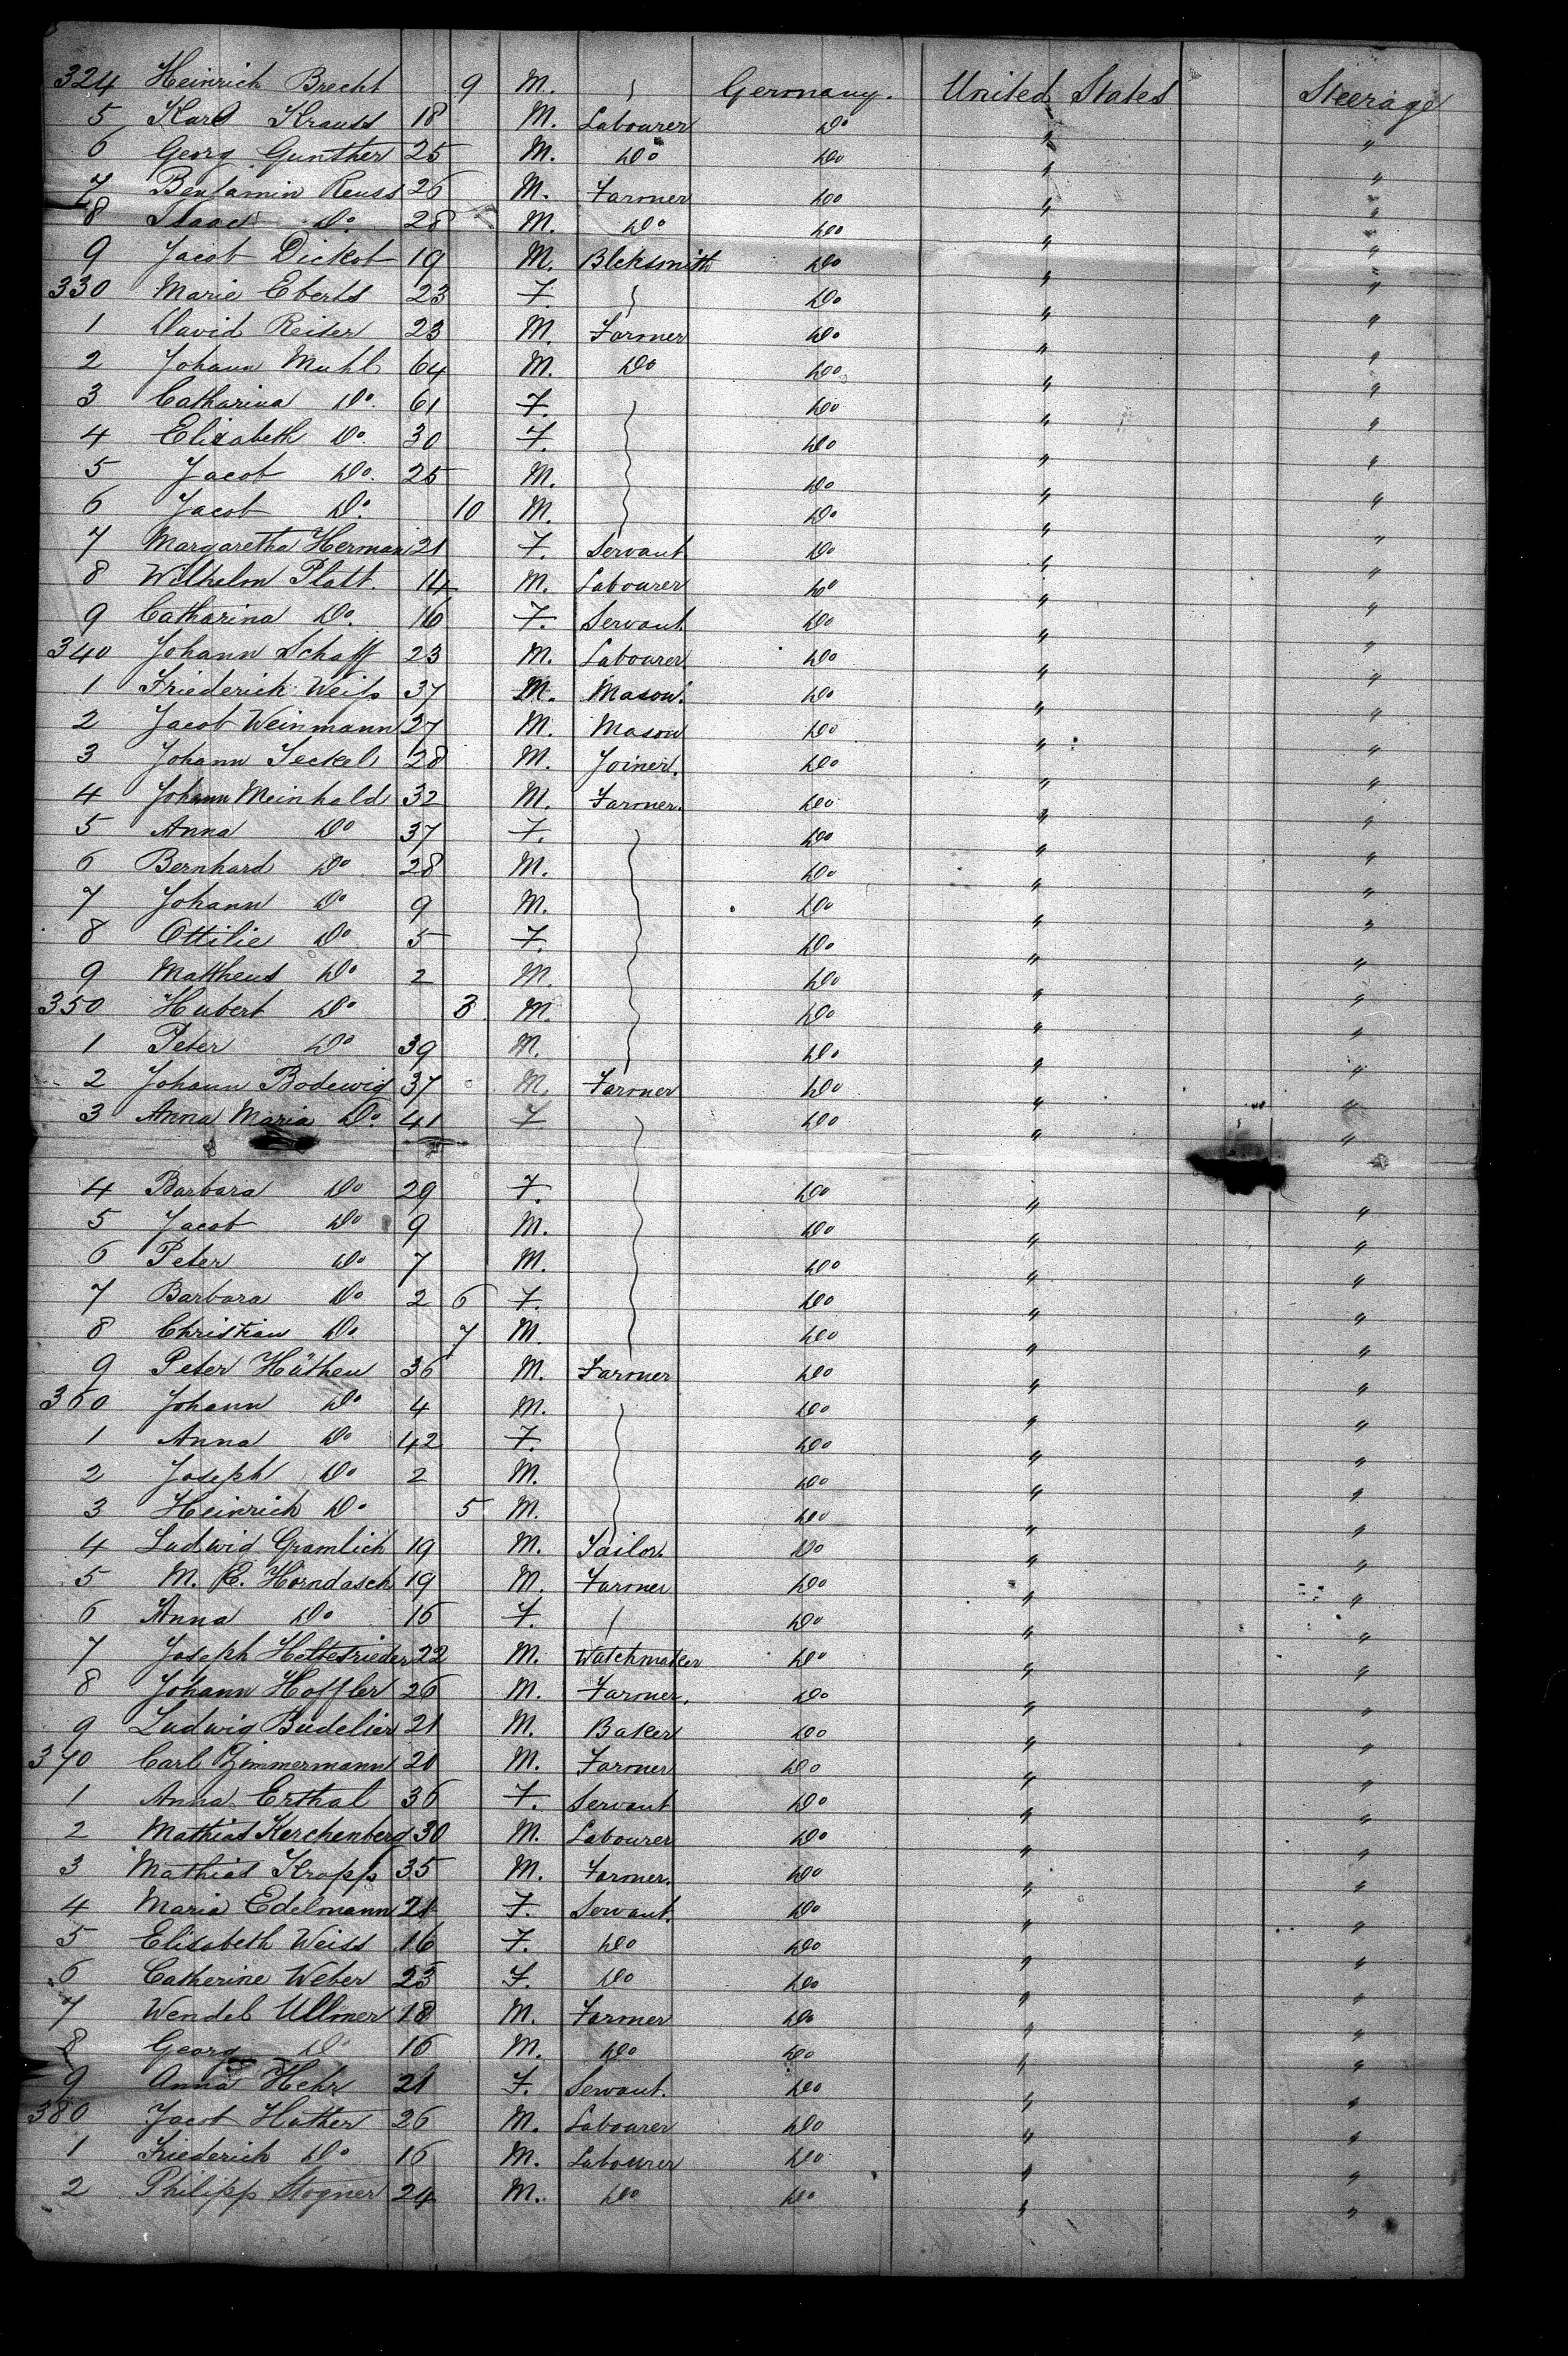 324 Heinrich Brecht 9 M. Germany. United States Steerage
5 Karl Krauss 18 M. Labourer Do "  "
6 Georg Gunther 25 M. Do Do " "
7 Benjamin Reuss 26 M. Farmer Do " "
8 Isaac Do. 28 M. Do Do " "
9 Jacob Dickob 19 M. Blcksmith Do " "
330 Marie Eberts 23 F. Do " "
1 David Reiter 23 M. Farmer Do " "
2 Johann Muhl 64 M. Do Do " "
3 Catharina Do. 61 F. Do " "
4 Elisabeth Do. 30 F. Do " "
5 Jacob Do. 25 M. Do " "
6 Jacob Do. 10 M. Do " "
7 Margaretha Herman 21 F. Servant Do " "
8 Wilhelm Platt. 14 M. Labourer Do " "
9 Catharina Do. 16 F. Servant Do " "
340 Johann Schaff 23 M. Labourer Do " "
1 Friederich Weiſs 37 M. Mason. Do " "
2 Jacob Weinmann 27 M. Mason Do " "
3 Johann Seckel 28 M. Joiner. Do " "
4 Johann Meinhold 32 M. Farmer. Do " "
5 Anna Do 37 F. Do " "
6 Bernhard Do 28 M. Do " "
7 Johann Do 9 M. Do " "
8 Ottilie Do 5 F. Do " "
9 Mattheus Do 2 M. Do " "
350 Hubert Do 3. M. Do " "
1 Peter Do 39 M. Do " "
2 Johann Bodewig 37 M. Farmer Do " "
3 Anna Maria Do. 41 F Do " "
4 Barbara Do 29 F. Do " "
5 Jacob Do 9 M. Do " "
6 Peter Do 7 M. Do " "
7 Barbara Do 2 6 F. Do " "
8 Christian Do. 7 M. Do " "
9 Peter Hüthen 36 M. Farmer Do " "
360 Johann Do 4 M. Do " "
1 Anna Do 42 F. Do " "
2 Joseph Do 2 M. Do " "
3 Heinrich Do 5 M. Do " "
4 Ludwig Gramlich 19 M. Tailor. Do " "
5 M. C. Horndasch 19 M. Farmer Do " "
6 Anna Do 16 F. Do " "
7 Joseph 22 M. Watchmaker Do " "
8 Johann Hoffler 26 M. Farmer. Do " "
9 Ludwig Budelier 21 M. Baker Do " "
370 Carl Zimmermann 20 M. Farmer Do " "
1 Anna Erthal 36 F. Servant Do " "
2 Mathias Kerchenberg 30 M. Labourer Do " "
3 Mathias Kropp 35 M. Farmer. Do " "
4 Maria Edelmann 21 F. Servant. Do " "
5 Elisabeth Weiss 16 F. Do Do " "
6 Catherine Weber 23 F. Do Do " "
7 Wendel Ullmer 18 M. Farmer Do " "
8 Georg Do 16 M. Do Do " "
9 Anna Hehr 21 F. Servant. Do " "
380 Jacob Huther 26 M. Labourer Do " "
1 Friederich Do 16 M. Labourer Do " "
2 Philipp Stogner 24 M. Do Do " "